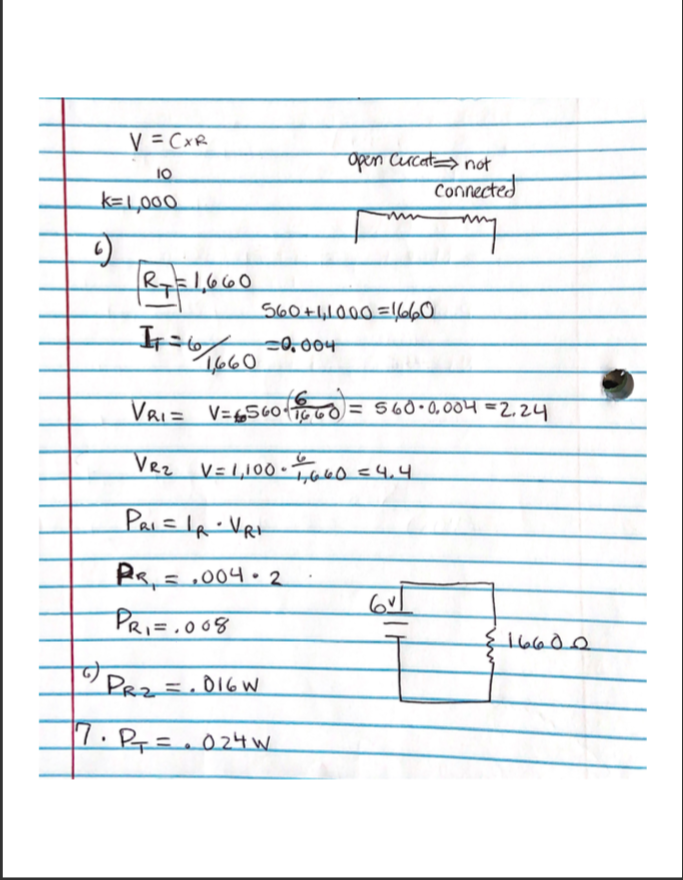 V = C×R
10
k=1,000
open curcat ⇒ not
connected
6)
R_T = 1,660
560+1,1000 = 1,660
I_T = 6/1,660 = 0.004
V_R1 = V= 560·(6/1660) = 560·0.004 = 2.24
V_R2 V = 1,100·6/1,660 = 4.4
P_R1 = I_R · V_R1
P_R1 = .004 · 2
P_R1 = .008
6V
1660Ω
6) P_R2 = .016W
7. P_T = .024W